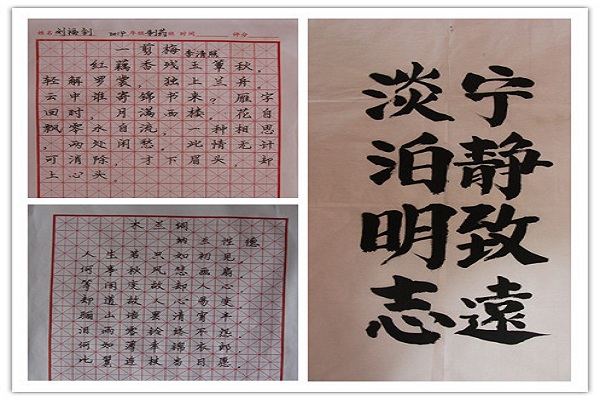 姓名 2019 年级 制药 班 时间 评分
一剪梅
李清照
红藕香残玉簟秋，
轻解罗裳，独上兰舟，
云中谁寄锦书来？雁字
回时，月满西楼，花自
飘零水自流，一种相思
，两处闲愁。此情无计
可消除，才下眉头，却
上心头。
木兰词
纳兰性德
人生若只如初见
何事秋风悲画扇
等闲变却故人心
却道故人心易变
骊山语罢清宵半
泪雨零铃终不怨
何如薄幸锦衣郎
比翼连枝当日愿
宁静致遠
淡泊明志